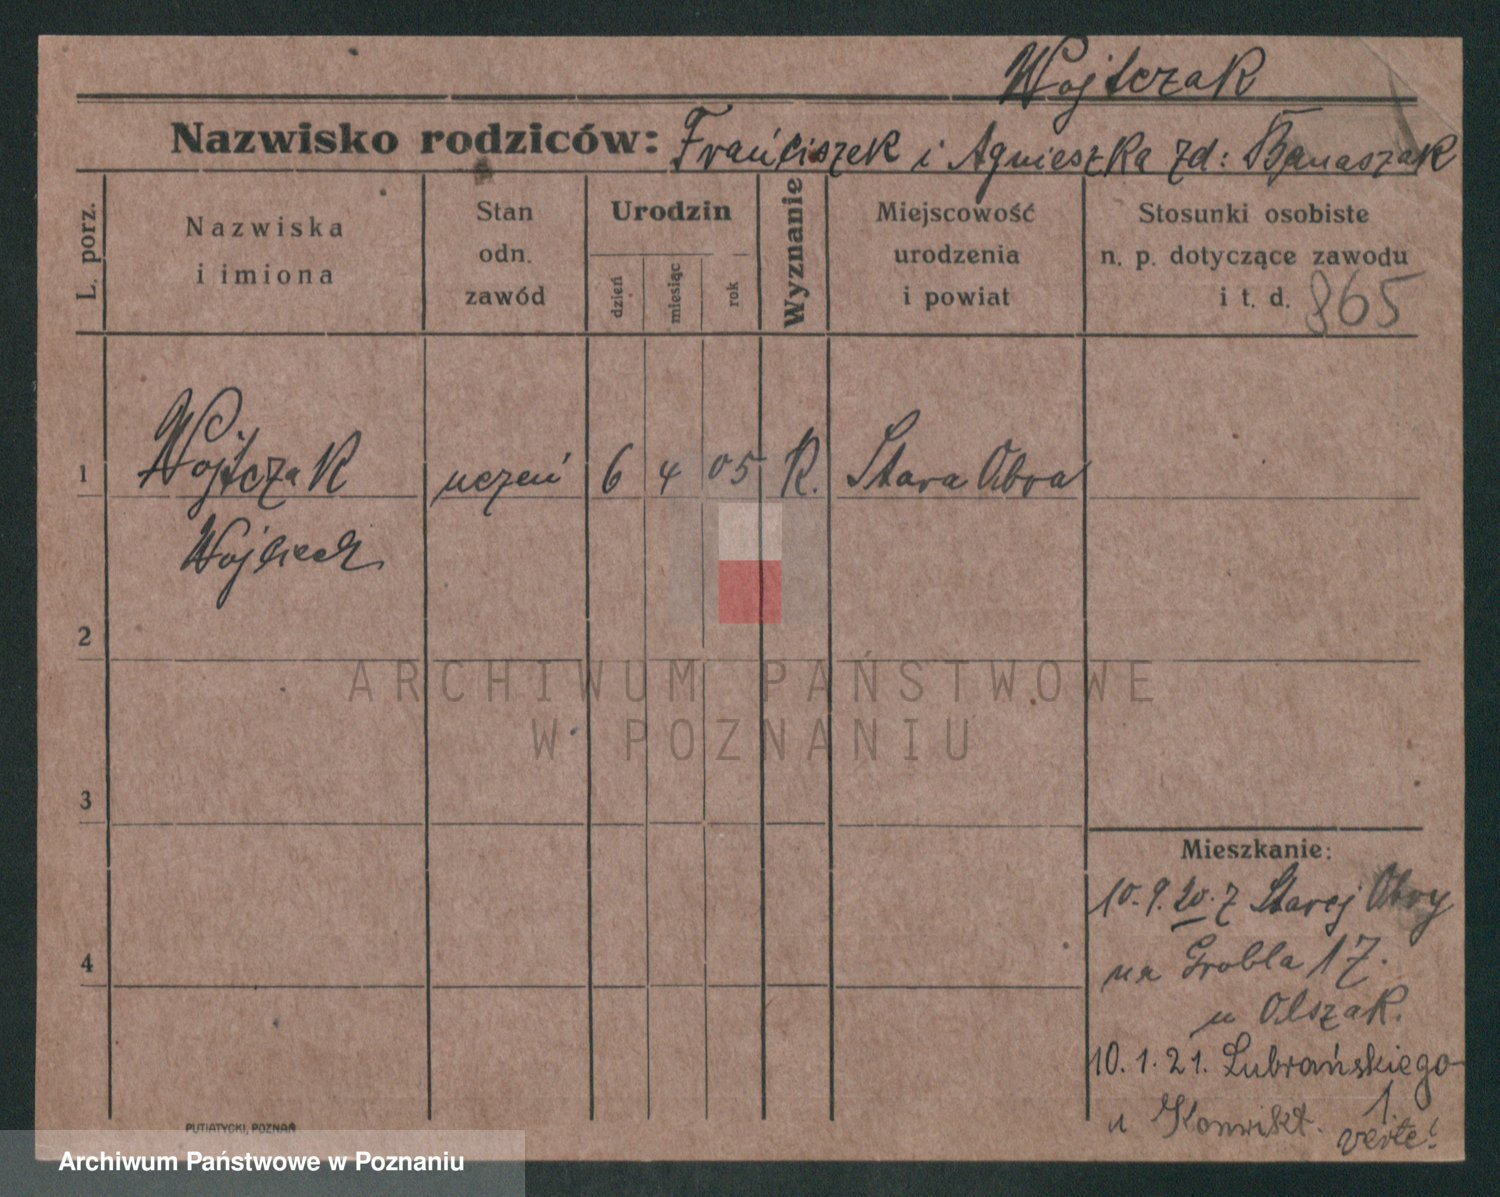 Wojtczak
Nazwisko rodziców: Franciszek i Agnieszka zd: Banaszak
L. porz.
Nazwiska
i imiona
Stan
odn.
zawód
Urodzin
dzień
miesiąc
rok
Wyznanie
Miejscowość
urodzenia
i powiat
Stosunki osobiste
n. p. dotyczące zawodu
i t. d. 865
1 Wojtczak uczeń 6 4 05 R. Stara Obra
Wojciech
2
ARCHIWUM PAŃSTWOWE
W POZNANIU
3
Mieszkanie:
10.9.20. z Starej Obry
4
na Grobla 17.
u Olszak.
10.1.21. Lubrańskiego
1.
u Konwikt. verte!
PUTIATYCKI, POZNAŃ
Archiwum Państwowe w Poznaniu